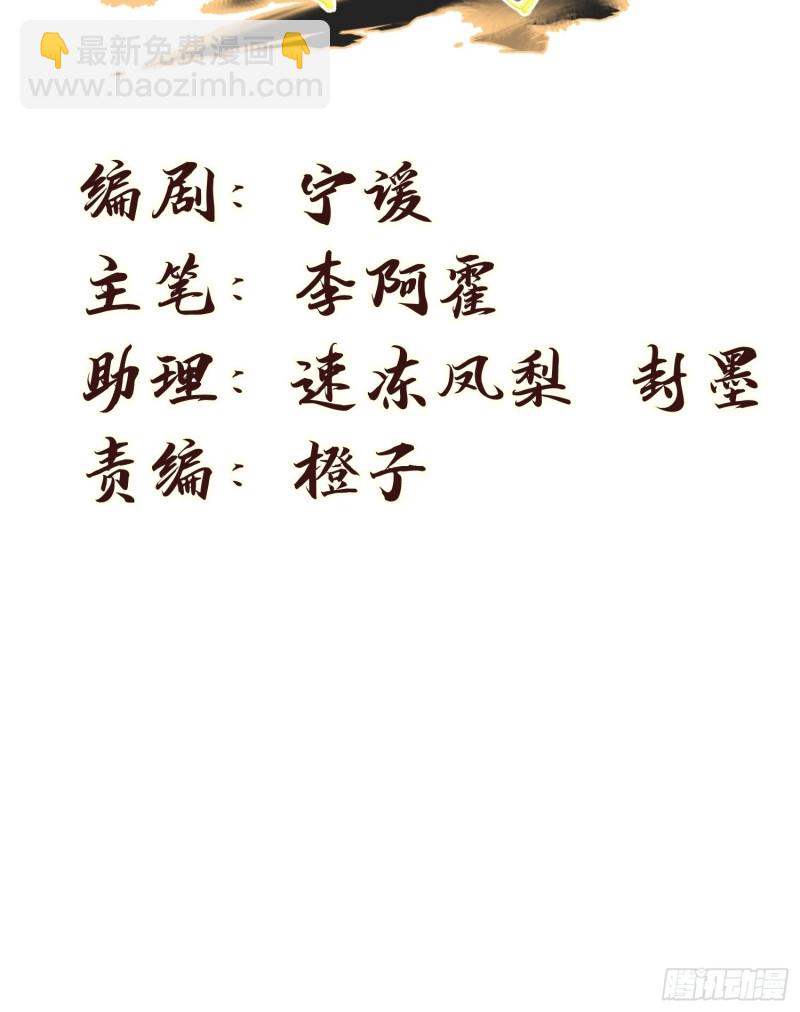 👇最新免费漫画👇
www.baozimh.com
编剧：宁谖
主笔：李阿霍
助理：速冻凤梨 封墨
责编：橙子
腾讯动漫